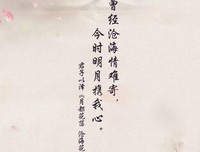 曾经沧海情难寄，
今时明月携我心。
君子以泽《月都花落 沧海花